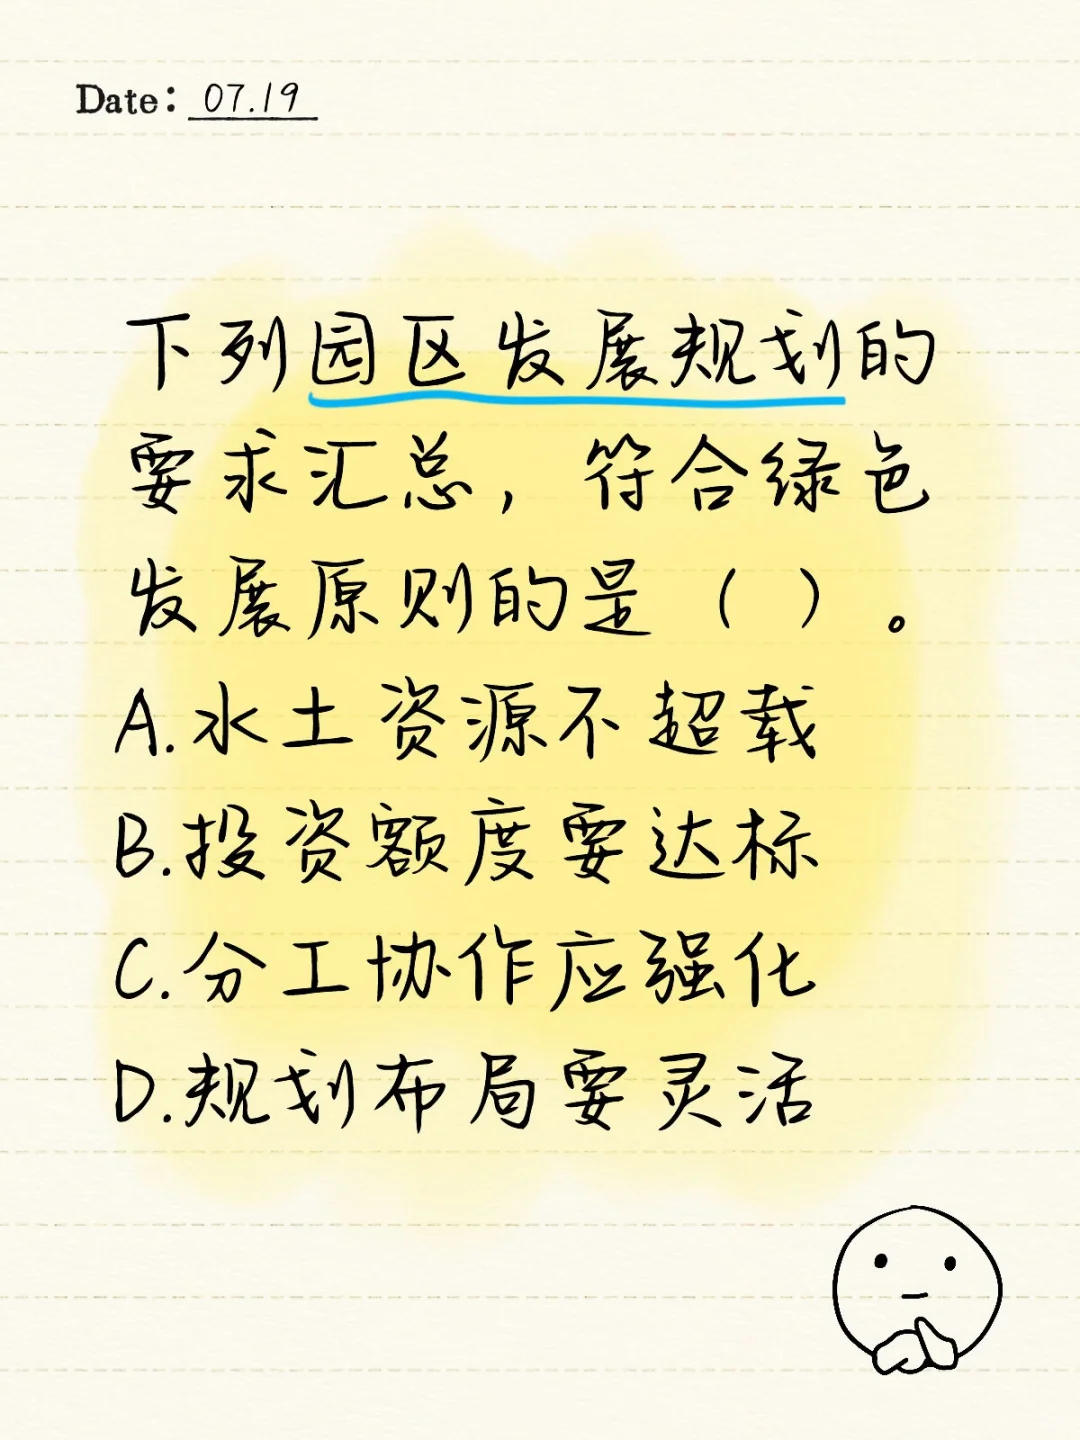 Date: 07.19
下列园区发展规划的
要求汇总，符合绿色
发展原则的是（ ）。
A.水土资源不超载
B.投资额度要达标
C.分工协作应强化
D.规划布局要灵活